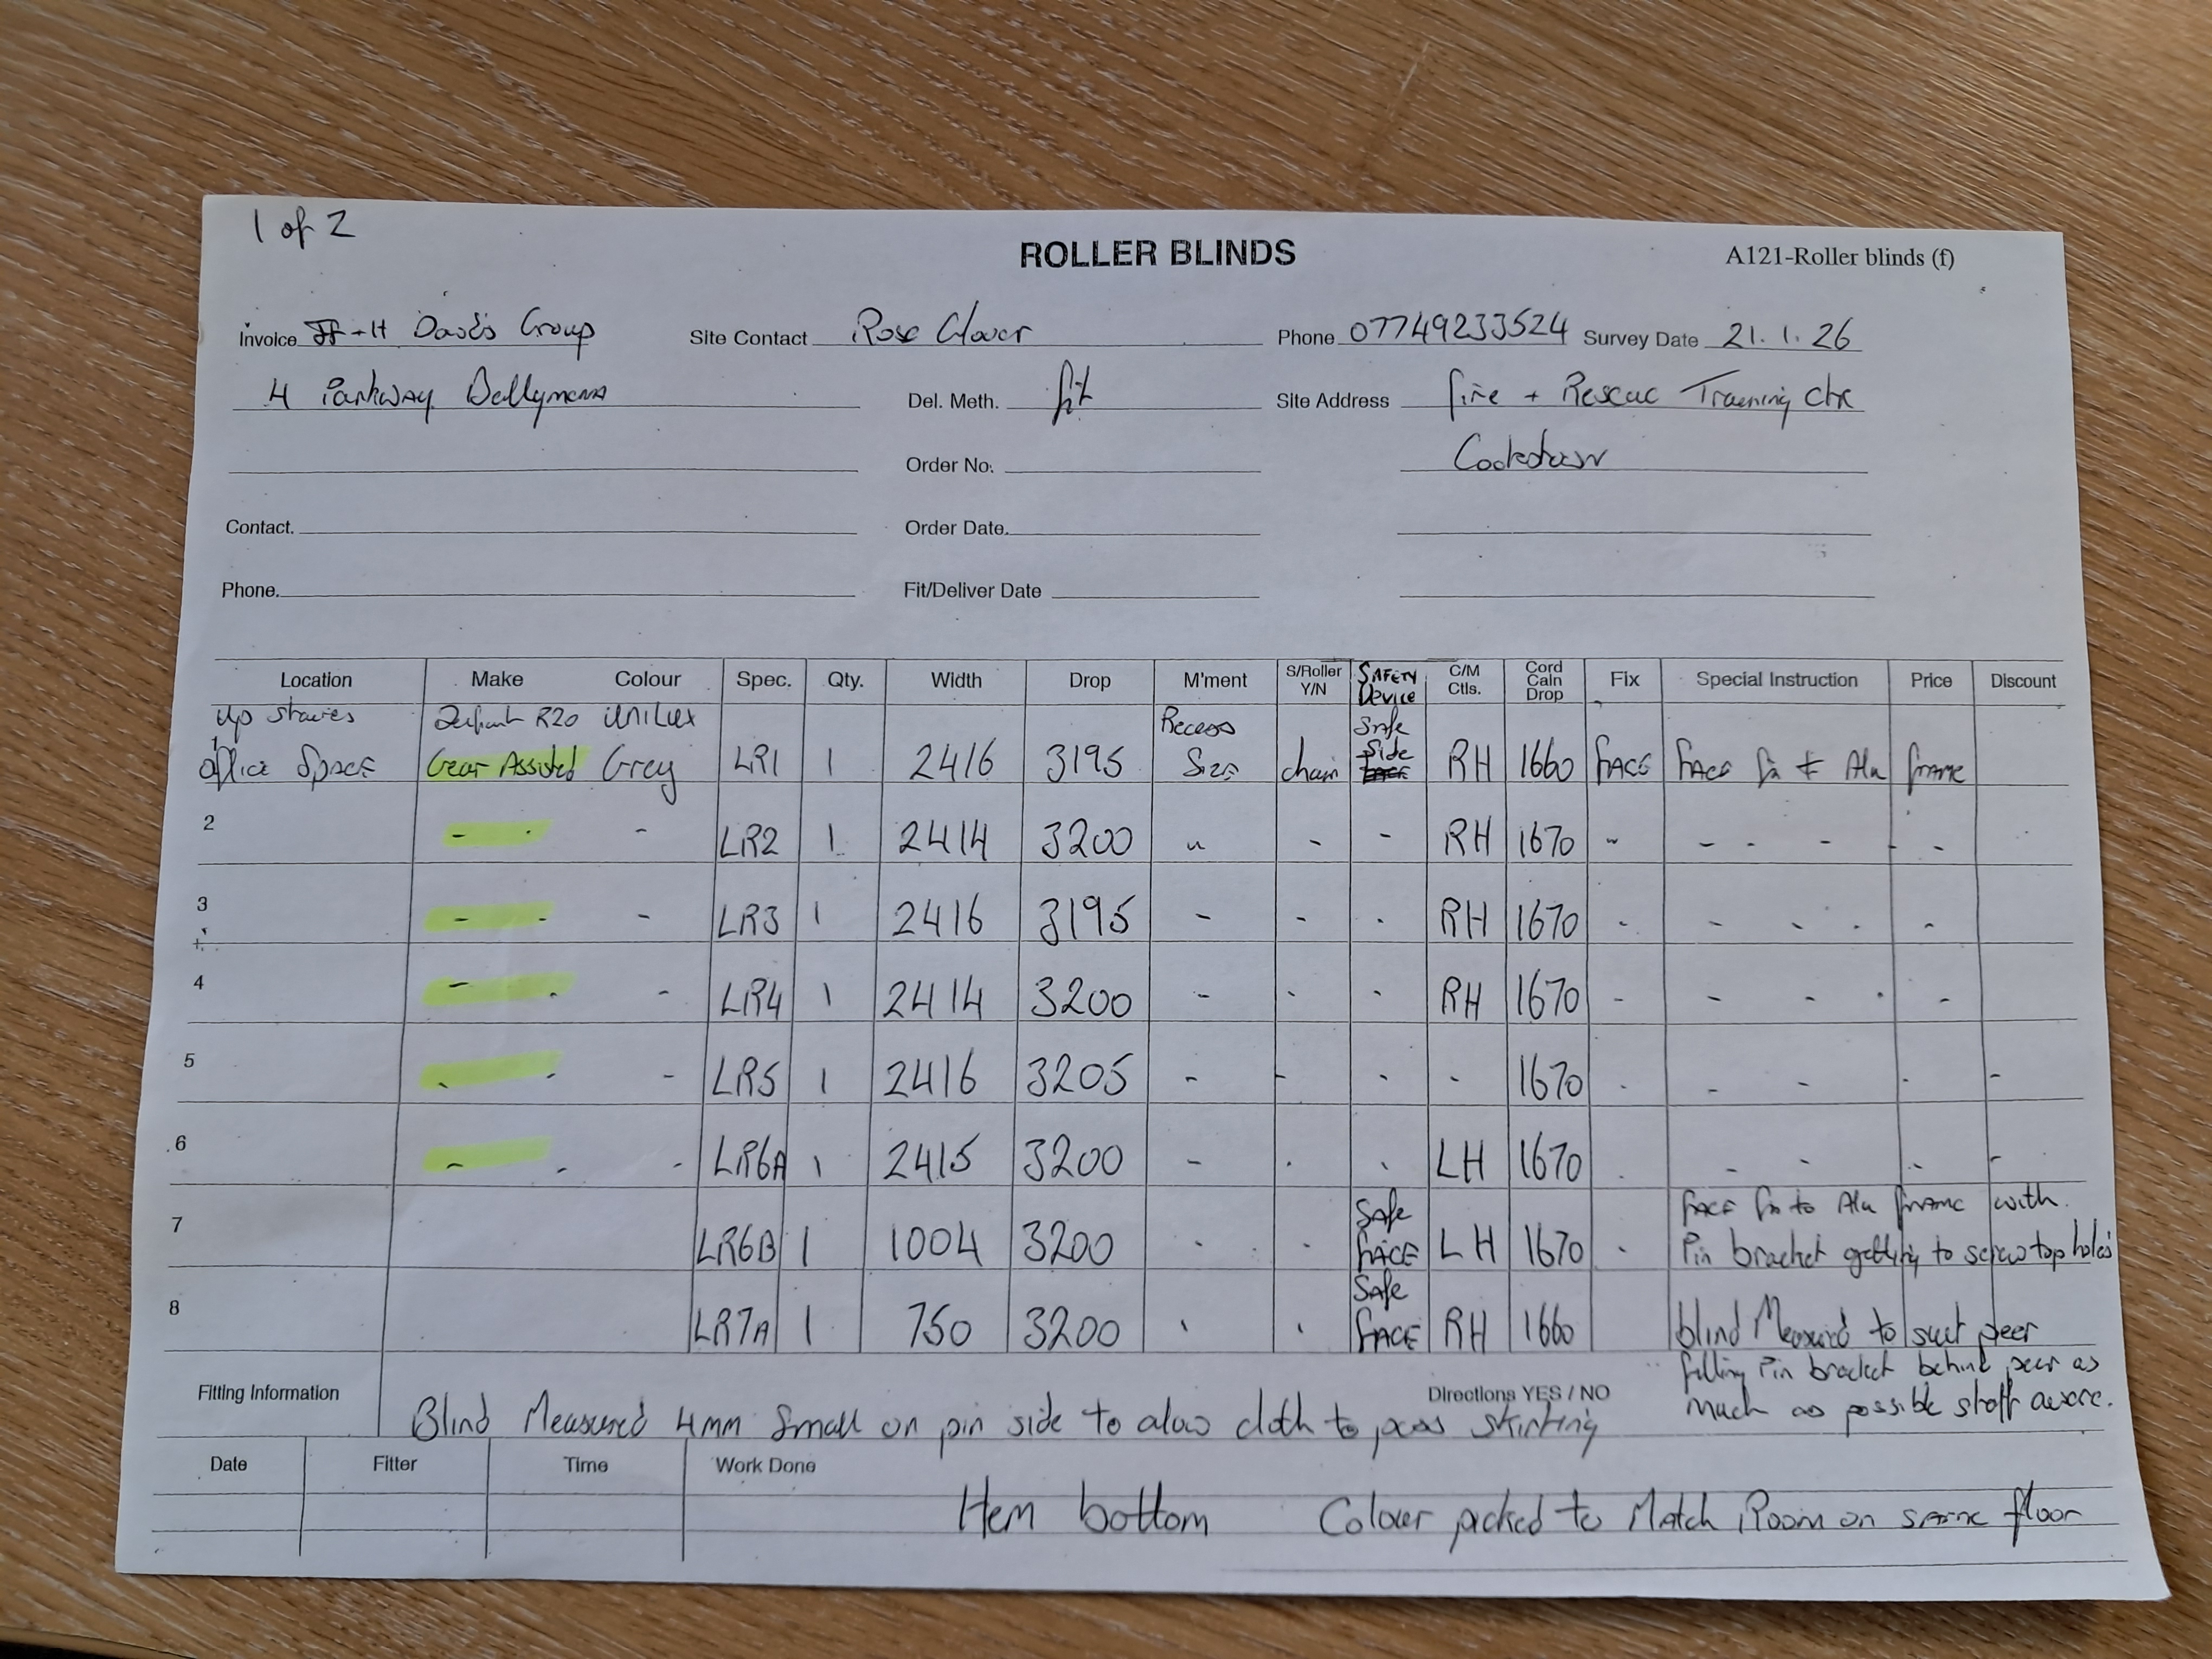 1 of 2
ROLLER BLINDS
A121-Roller blinds (f)
Invoice +H Davis Group Site Contact Rose Clover Phone 07749233524 Survey Date 21.1.26
4 Parkway Ballymena Del. Meth. fit Site Address fire + Rescue Training ctr
Order No. Cookstown
Contact. Order Date.
Phone. Fit/Deliver Date
Location Make Colour Spec. Qty. Width Drop M'ment S/Roller Y/N SAFETY Device C/M Ctls. Cord Cain Drop Fix Special Instruction Price Discount
up staires R20 UniLux Recess Safe
1 office Space Gear Assisted Grey LR1 1 2416 3195 Size chain Side RH 1660 FACE FACE fix to Alu frame
2 - - - LR2 1 2414 3200 " - - RH 1670 - - - - - -
3 - - - LR3 1 2416 3195 - - - RH 1670 - - - - -
4 - - - LR4 1 2414 3200 - - - RH 1670 - - - - -
5 - - - LR5 1 2416 3205 - - - - 1670 - - - - -
6 - - - LR6A 1 2415 3200 - - - LH 1670 - - - - -
Safe FACE fix to Alu frame with
7 LR6B 1 1004 3200 - - FACE LH 1670 - Pin bracket getting to screw top holes
Safe
8 LR7A 1 750 3200 - - FACE RH 1660 blind Measured to suit peer
filling Pin bracket behind peer as
Fitting Information Directions YES / NO much as possible staff aware.
Blind Measured 4mm Small on pin side to alow cloth to pass skirting
Date Fitter Time Work Done
Hem bottom Colour picked to Match Room on same floor